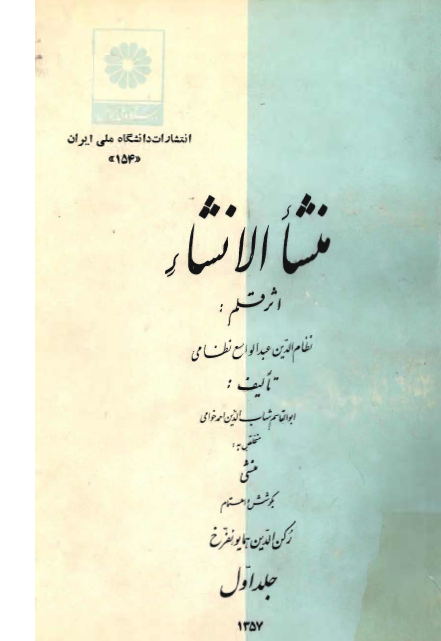 انتشارات دانشگاه ملی ایران
«۱۵۴»
منشأ الانشاء
اثر قلم :
نظام الدین عبدالواسع نظامی
تألیف :
ابوالقاسم شهاب الدین احمد خوافی
متخلص به :
منشی
بکوشش و اهتمام
رکن الدین همایونفرخ
جلد اول
۱۳۵۷